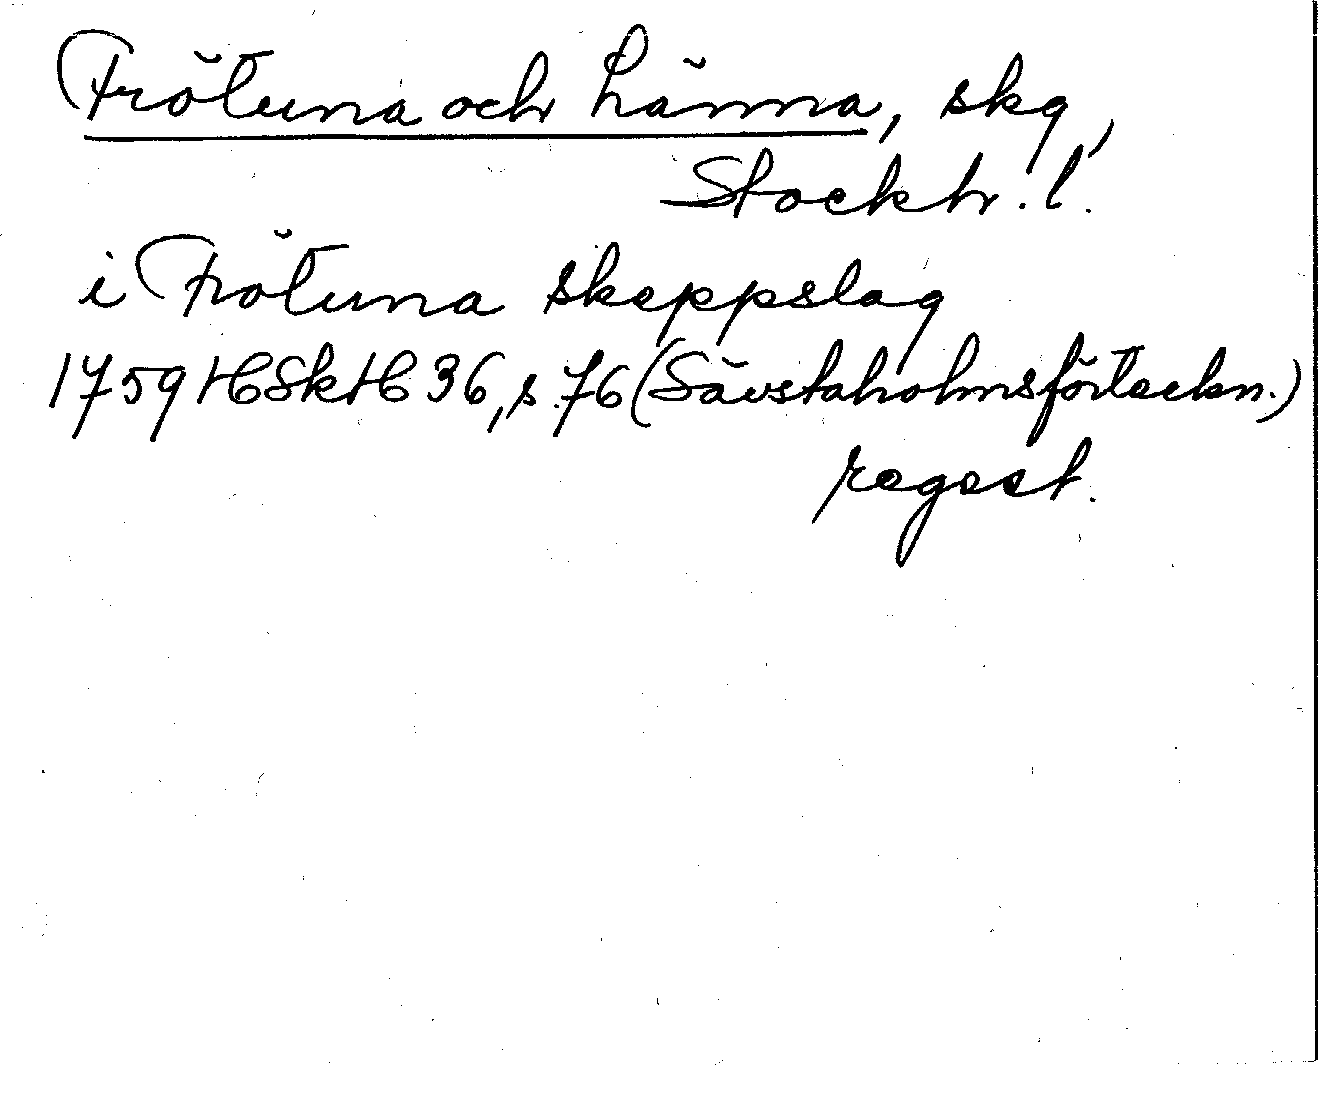 Frötuna och Länna, skg,
Stockh. l.
i Frötuna skeppslag
1759 HSkH 36, s. 76 (Sävstaholmsförteckn.)
regest.